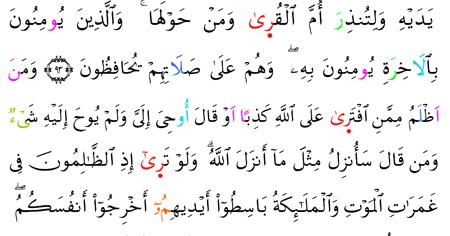 يَدَيْهِ وَلِتُنذِرَ أُمَّ ٱلْقُرَىٰ وَمَنْ حَوْلَهَا ۚ وَٱلَّذِينَ يُومِنُونَ
بِٱلَاخِرَةِ يُومِنُونَ بِهِۦۖ وَهُمْ عَلَىٰ صَلَاتِهِمْ يُحَافِظُونَ ۝٩٣ وَمَنَ
اَظْلَمُ مِمَّنِ ٱفْتَرَىٰ عَلَى ٱللَّهِ كَذِبًا اَوْ قَالَ أُوحِىَ إِلَىَّ وَلَمْ يُوحَ إِلَيْهِ شَىْءٌ
وَمَن قَالَ سَأُنزِلُ مِثْلَ مَا أَنزَلَ ٱللَّهُ ۗ وَلَوْ تَرَىٰٓ إِذِ ٱلظَّٰلِمُونَ فِى
غَمَرَٰتِ ٱلْمَوْتِ وَٱلْمَلَٰٓئِكَةُ بَاسِطُوٓاْ أَيْدِيهِمُۥٓ أَخْرِجُوٓاْ أَنفُسَكُمُ ۖ